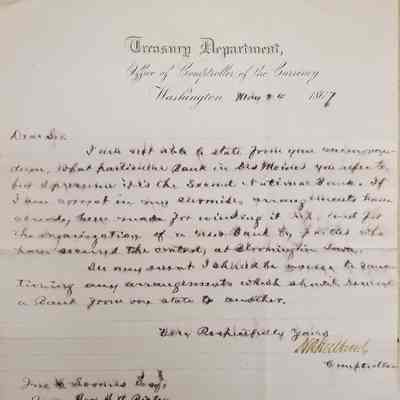 Treasury Department,
Office of Comptroller of the Currency
Washington May 24 1867
Dear Sir.
I am not able to state from your memoran-
dum, what particular Bank in Des Moines you refer to,
but I presume it is the Second National Bank. If
I am correct in my surmise, arrangements have
already been made for winding it up, and for
the organization of a new Bank by parties who
have secured the control, at Bloomington Iowa.
In any event I should be averse to sanc-
tioning any arrangements which should remove
a Bank from one state to another.
Very Respectfully Yours
Comptroller
Loomis Esq.
Hon.